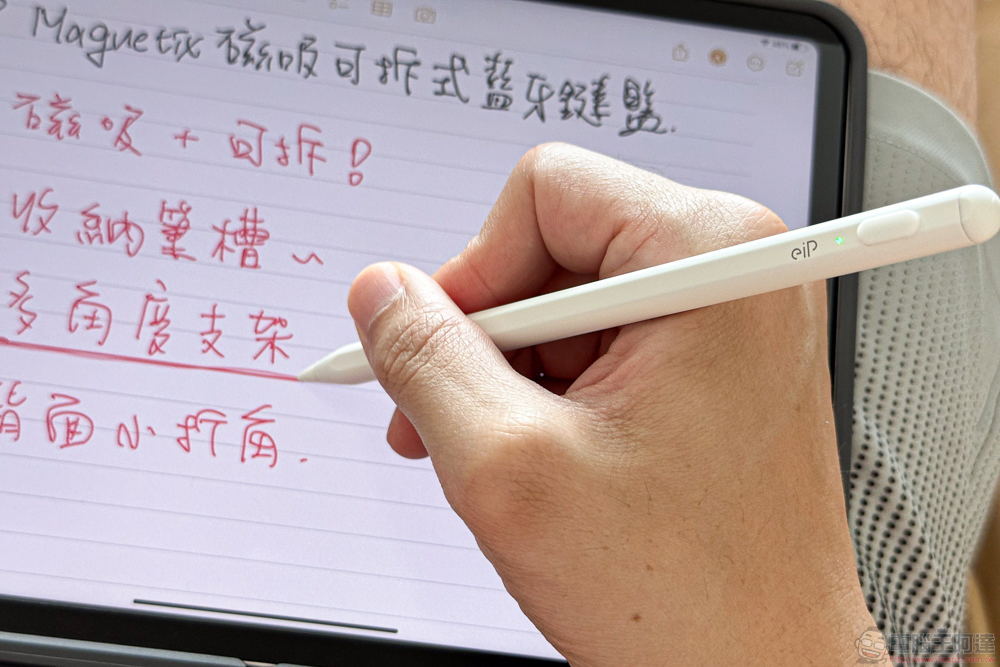 Maguetix 磁吸可拆式藍牙鍵盤.
磁吸 + 可拆!
收納筆槽~
多角度支架
背面小折角.
eiP
電腦王阿達